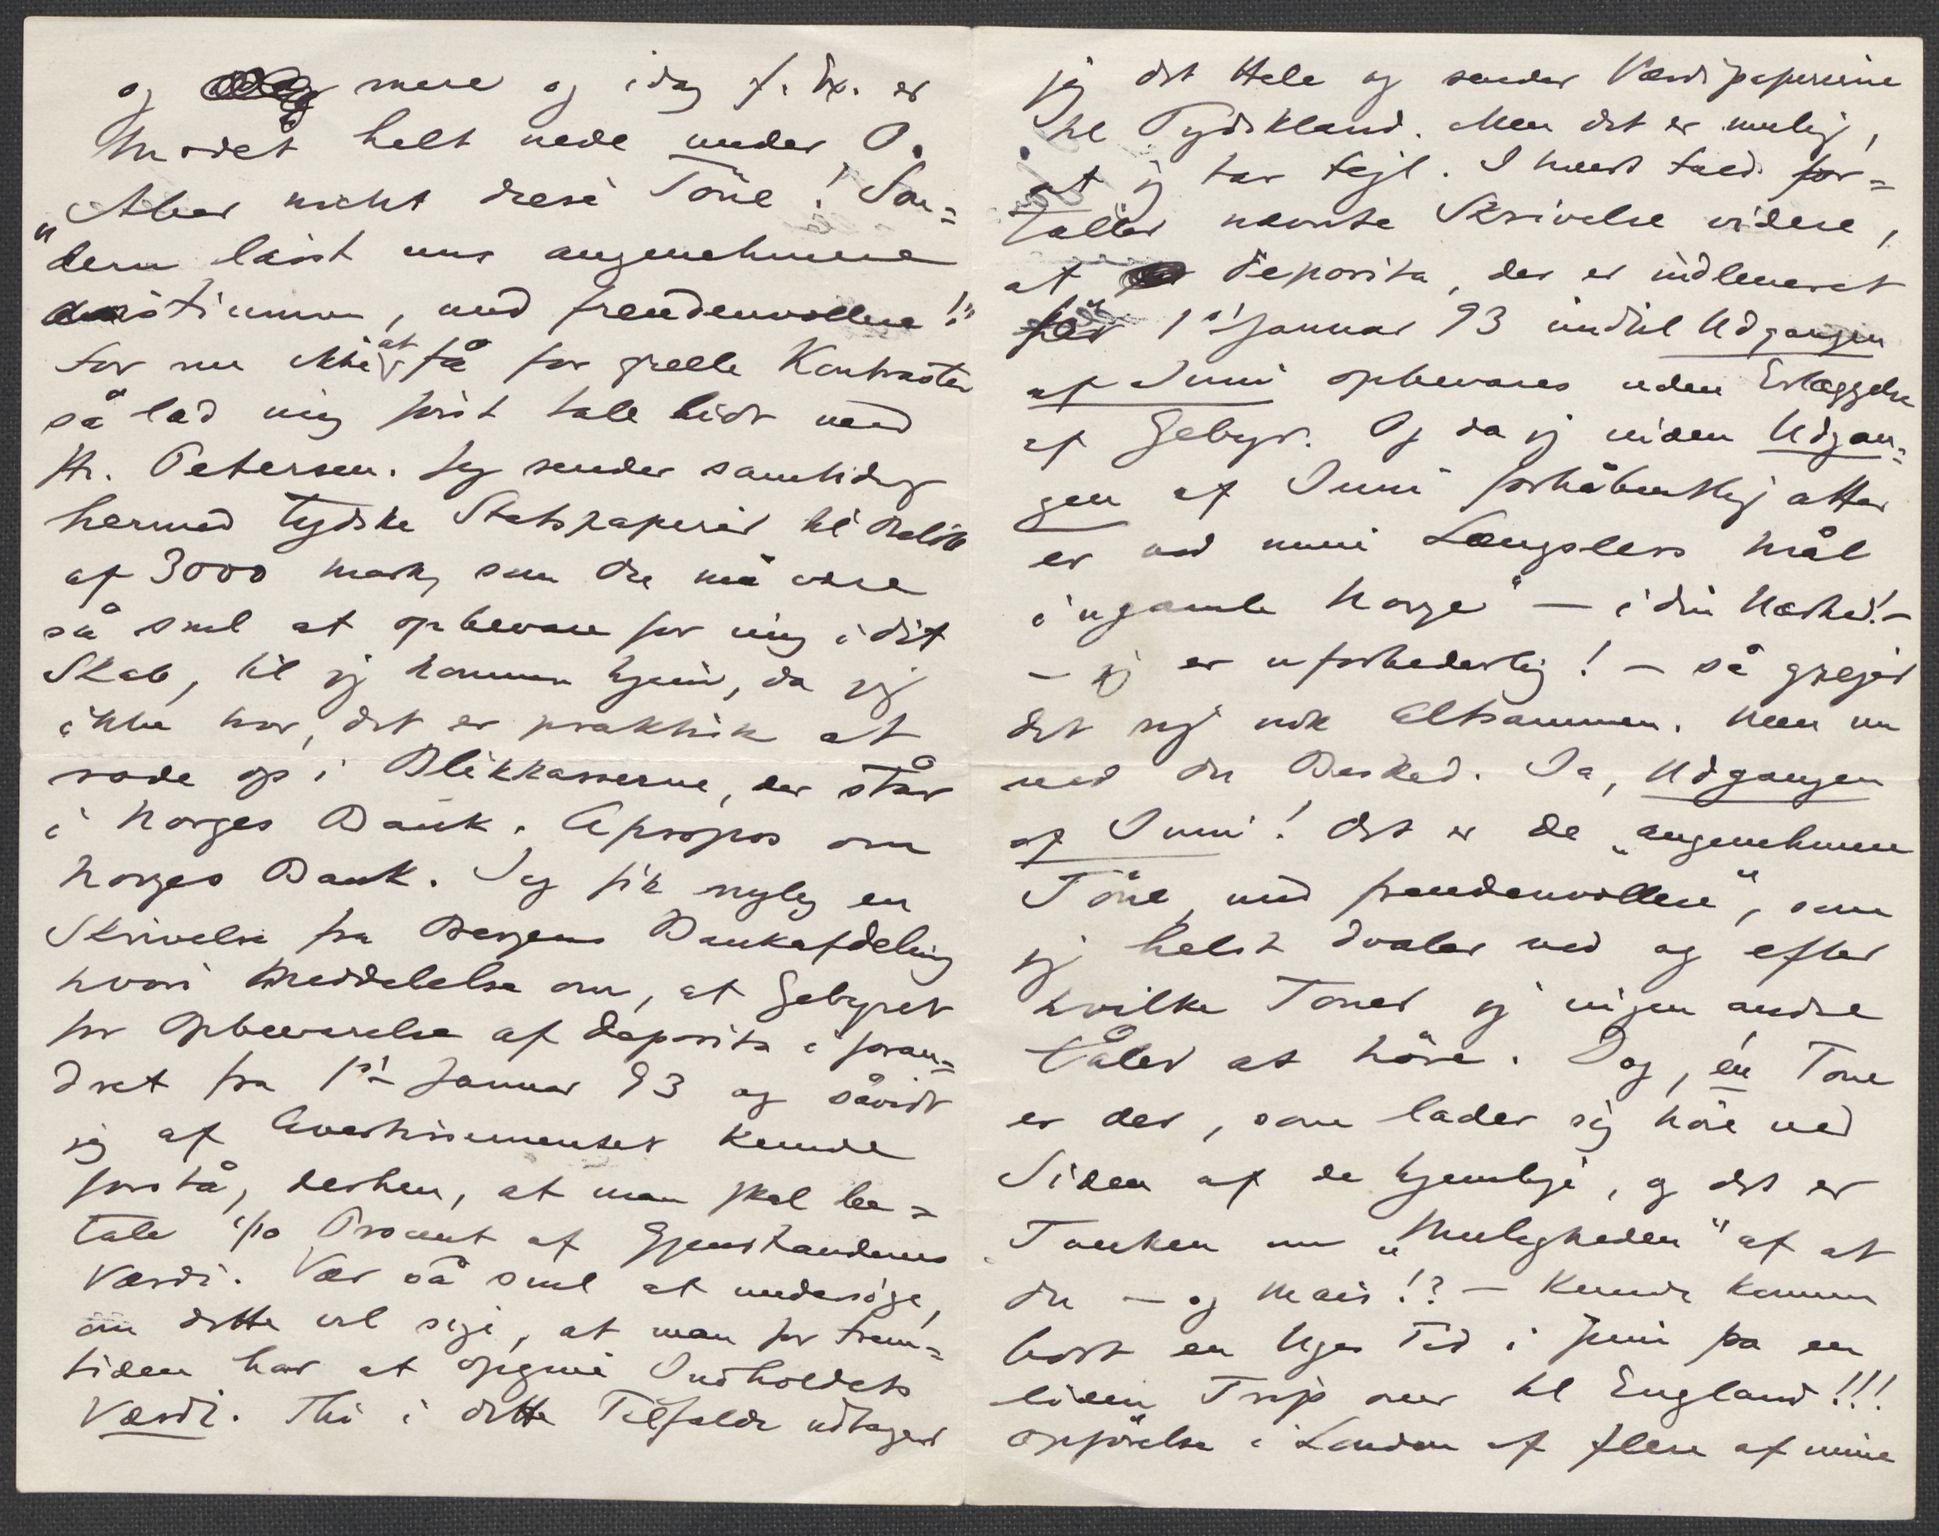 og mere og idag f. Ex. er
Modet helt nede under 0.
"Aber nicht diese Töne! Son=
dern lasst uns angenehmere
anstimmen, und freudenvollere!"
For nu ikke at få for grelle Kontraster
så lad mig först tale lidt med
Hr. Petersen. Jeg sender samtidig
hermed tydske Statspapirer til Beløb
af 3000 mark, som du må være
så snil at opbevare for mig i dit
Skab, til jeg kommer hjem, da jeg
ikke tror, det er praktisk at
rode op i Blikkasserne, der står
i Norges Bank. Apropos om
Norges Bank. Jeg fik nylig en
Skrivelse fra Bergens Bankafdeling
hvori Meddelelse om, at Gebyret
for Opbevarelse af Deposita er foran=
dret fra 1ste Januar 93 og såvidt
jeg af Avertissementet kunde
forstå, derhen, at man skal be=
tale 1/10 Procent af Gjenstandens
Værdi. Vær så snil at undersöge,
om dette vil sige, at man for Frem=
tiden har at opgive Indholdets
Værdi. Thi i dette Tilfælde udtager
jeg det Hele og sender Værdipapirerne
til Tydskland. Men det er mulig,
at jeg tar fejl. I hvert Fald for=
tæller nævnte Skrivelse videre,
at Deposita, der er indleveret
för 1ste Januar 93 indtil Udgangen
af Juni opbevares uden Erlæggelse
af Gebyr. Og da jeg inden Udgan=
gen af Juni forhåbentlig atter
er ved mine Længslers Mål
i "gamle Norge" – i din Nærhed! –
– jeg er uforbederlig! – så grejer
det sig nok altsammen. Men nu
ved du Besked. Ja, Udgangen
af Juni! Det er de "angenehmere
Töne und freudenvollere", som
jeg helst dvæler ved og efter
hvilke Toner jeg ingen andre
tåler at höre. Dog, én Tone
er der, som lader sig höre ved
Siden af de hjemlige, og det er
Tanken om "Muligheden" af at
du – og Marie!? – kunde komme
bort en Uges Tid i Juni på en
liden Trip over til England!!!
Opförelse i London af flere af mine